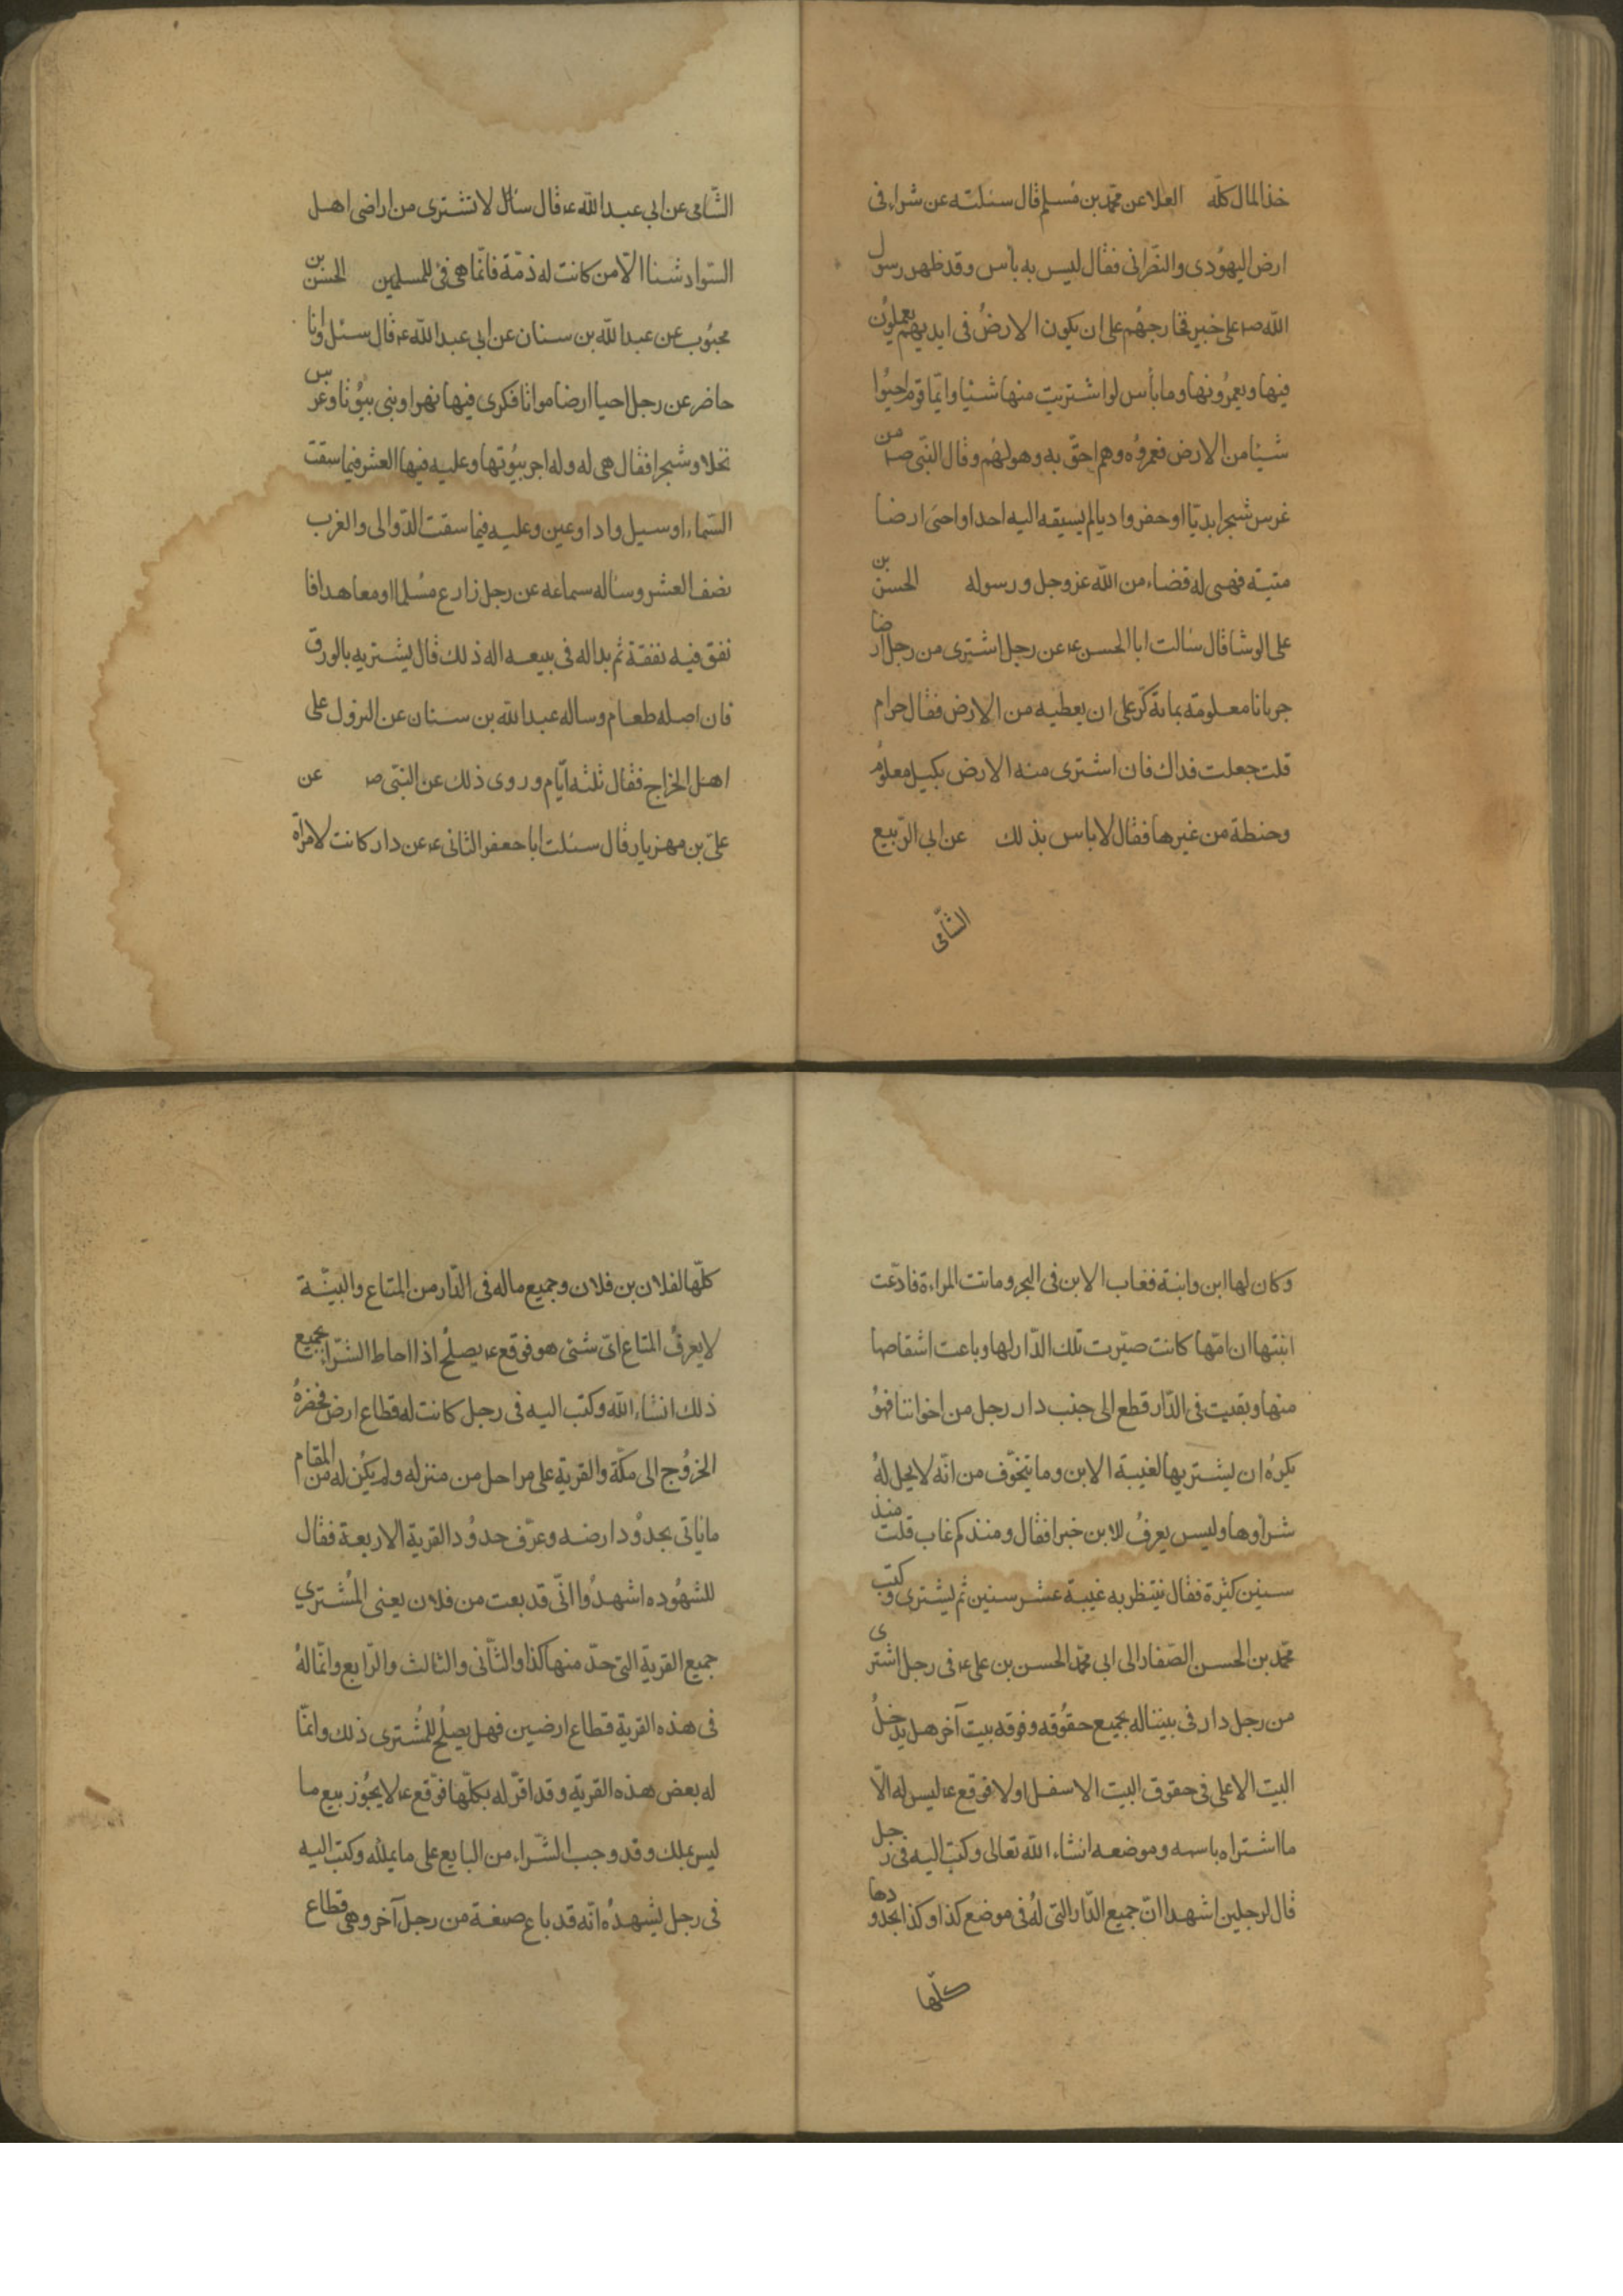 خذ المال كلّه العلا عن محمّد بن مُسلم قال سئلته عن شراء فى
ارض اليهُودى والنصّرانى فقال ليس به باس وقد ظهر رسول
الله صـ على خيبر فخارجهُم على ان يكون الارضُ فى ايديهم يعملوُن
فيها ويعمرُونها وما بأس لو اشتريت منها شئيا وايّما قوم احيوُا
شيئا من الارض فعمروُه وهم احقّ به وهو لهُم وقال النّبى صـ من
غرس شجرا بديّا او حفر واديا لم يسبقه اليه احد او احيى ارضا
ميتة فهى له قضاء من الله عز وجل ورسوله الحسن بن
على الوشا قال سالت ابا الحسن ع عن رجل اشترى من رجل ارضا
جربانا معلومة بمائة كرّ على ان يعطيه من الارض فقال حرام
قلت جعلت فداك فان اشترى منه الارض بكيل معلوُم
وحنطة من غيرها فقال لا باس بذلك عن ابى الرّبيع
الشّامى
الشّامى عن ابى عبد الله ع قال سائل لا تشترى من اراضى اهل
السّواد شئا الّا من كانت له ذمّة فانّما هى فئ للمسلمين الحسن بن
محبُوب عن عبد الله بن سنان عن ابى عبد الله ع قال سئل وانا
حاضر عن رجل احيا ارضا مواتا فكرى فيها نهرا وبنى بيوُتا وغرس
نخلا وشجرا فقال هى له وله اجر بيُوتها وعليه فيها العشر فيما سقت
السّماء او سيل واد او عين وعليه فيما سقت الدّوالى والغرب
نصف العشر وساله سماعه عن رجل زارع مسُلما او معاهدا فا
نفق فيه نفقة ثم بدا له فى بيعه اله ذلك قال يشتريه بالورق
فان اصله طعام وساله عبد الله بن سنان عن النزول على
اهل الخراج فقال ثلثه ايّام وروى ذلك عن النبّى صـ عن
علىّ بن مهزيار قال سئلت ابا جعفر الثانى ع عن دار كانت لامراة
وكان لها ابن وابنة فغاب الابن فى البحر وماتت المراءة فادّعت
ابنتها ان امّها كانت صيّرت تلك الدّار لها وباعت اشقاصا
منها وبقيت فى الدّار قطع الى جنب دار رجل من اخواننا فهوُ
يكرهُ ان يشتريها لغيبة الابن وما يتخوّف من انّه لا يحل لهُ
شراوها وليس يعرفُ للابن خبرا فقال ومنذ كم غاب قلت منذ
سنين كثيرة فقال ينتظر به غيبة عشر سنين ثم يشترى وكتب
محمّد بن الحسن الصّفار الى ابى محمّد الحسن بن على ع فى رجل اشترى
من رجل دار فى بيتنا له بجميع حقُوقه وفوقه بيت آخر هل يدخلُ
البيت الاعلى فى حقوق البيت الاسفل اولا فوقع ع ليس له الّا
ما اشتراه باسمه وموضعه انشاء الله تعالى وكتب اليه فى رجل
قال لرجلين اشهدا انّ جميع الدّار التى لهُ فى موضع كذا وكذا بحدودها
كلّها
كلّها لفلان بن فلان وجميع ما له فى الدّار من المتاع والبيّنة
لا يعرفُ المتاع اىّ شئى هو فوقع ع يصلُح اذا احاط الشّراء بجميع
ذلك انشاء الله وكتب اليه فى رجل كانت له قطاع ارض فحضرهُ
الخروُج الى مكّة والقرية على مراحل من منزله ولم يكُن له من المقام
ما ياتى بحدوُد ارضه وعرّف حدوُد القرية الاربعة فقال
للشهُود ه اشهدوُا انّى قد بعت من فلان يعنى المُشترى
جميع القرية التى حدّ منها كذا والثّانى والثالث والرّابع وانّما لهُ
فى هذه القرية قطاع ارضين فهل يصلُح للمُشترى ذلك وانمّا
له بعض هذه القرية وقد اقرّ له بكلّها فوّقع ع لا يجُوز بيع ما
ليس يملك وقد وجب الشّراء من البايع على ما يملك وكتب اليه
فى رجل يشهدُه انّه قد باع صيغة من رجل آخر وهى قطاع